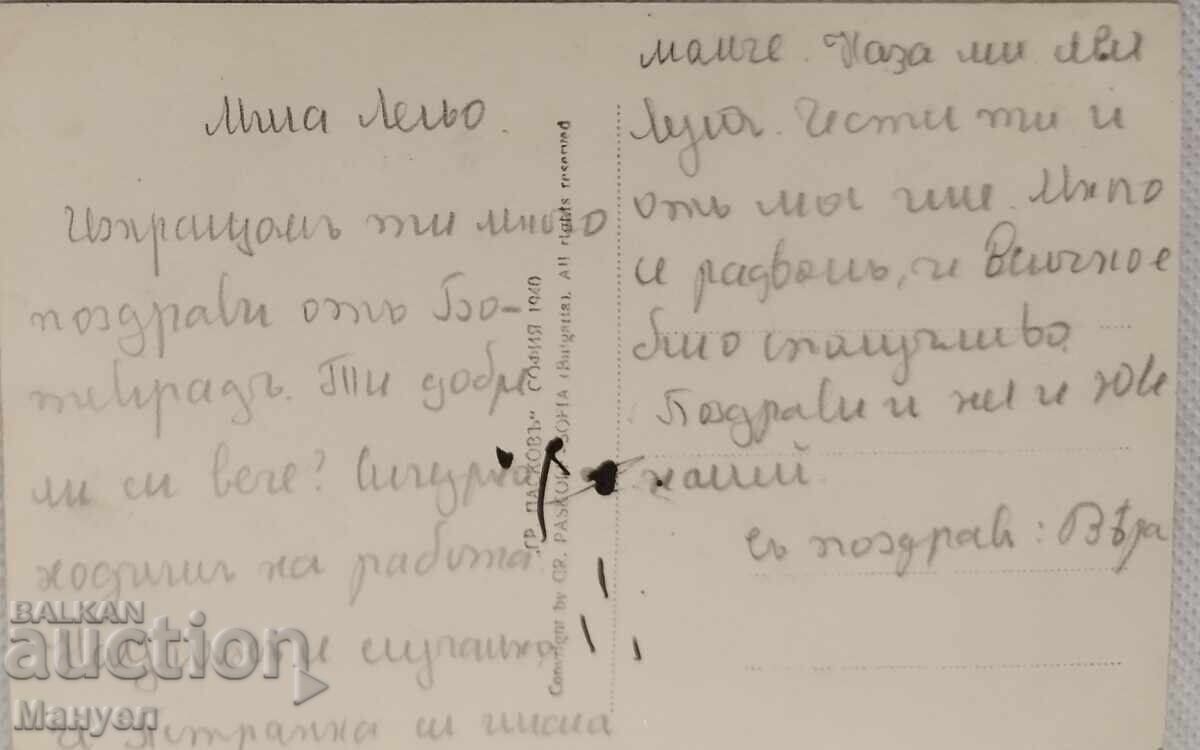 Мила Лельо.
Изпращамъ ти много
поздрави отъ Бо-
жевградъ. Ти добре
ли си вече? Сигурно
ходишъ на работа.
случайно
и Петранка си имала
момче. Каза ми леля
Луча. Честити ти и
отъ мы ние. Много
и радвамъ, че всичко е
било сполучливо.
Поздрави и на и
наши.
съ поздрав: Вѣра
"ГР. ПАСКОВЪ" СОФИЯ 1940
Copyright by GR. PASKOV SOFIA (Bulgaria). All rights reserved
BALKAN
auction
Мануел